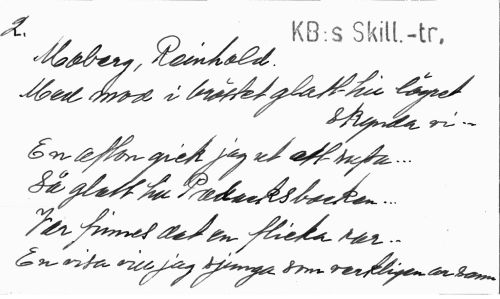 2.
KB:s Skill.-tr.
Moberg, Reinhold.
Med mod i bröstet glatt till lägret
skynda vi--
En afton gick jag ut att
Så glatt
Var finnes det en flicka rar..
En visa vill jag sjunga som verkligen är sann